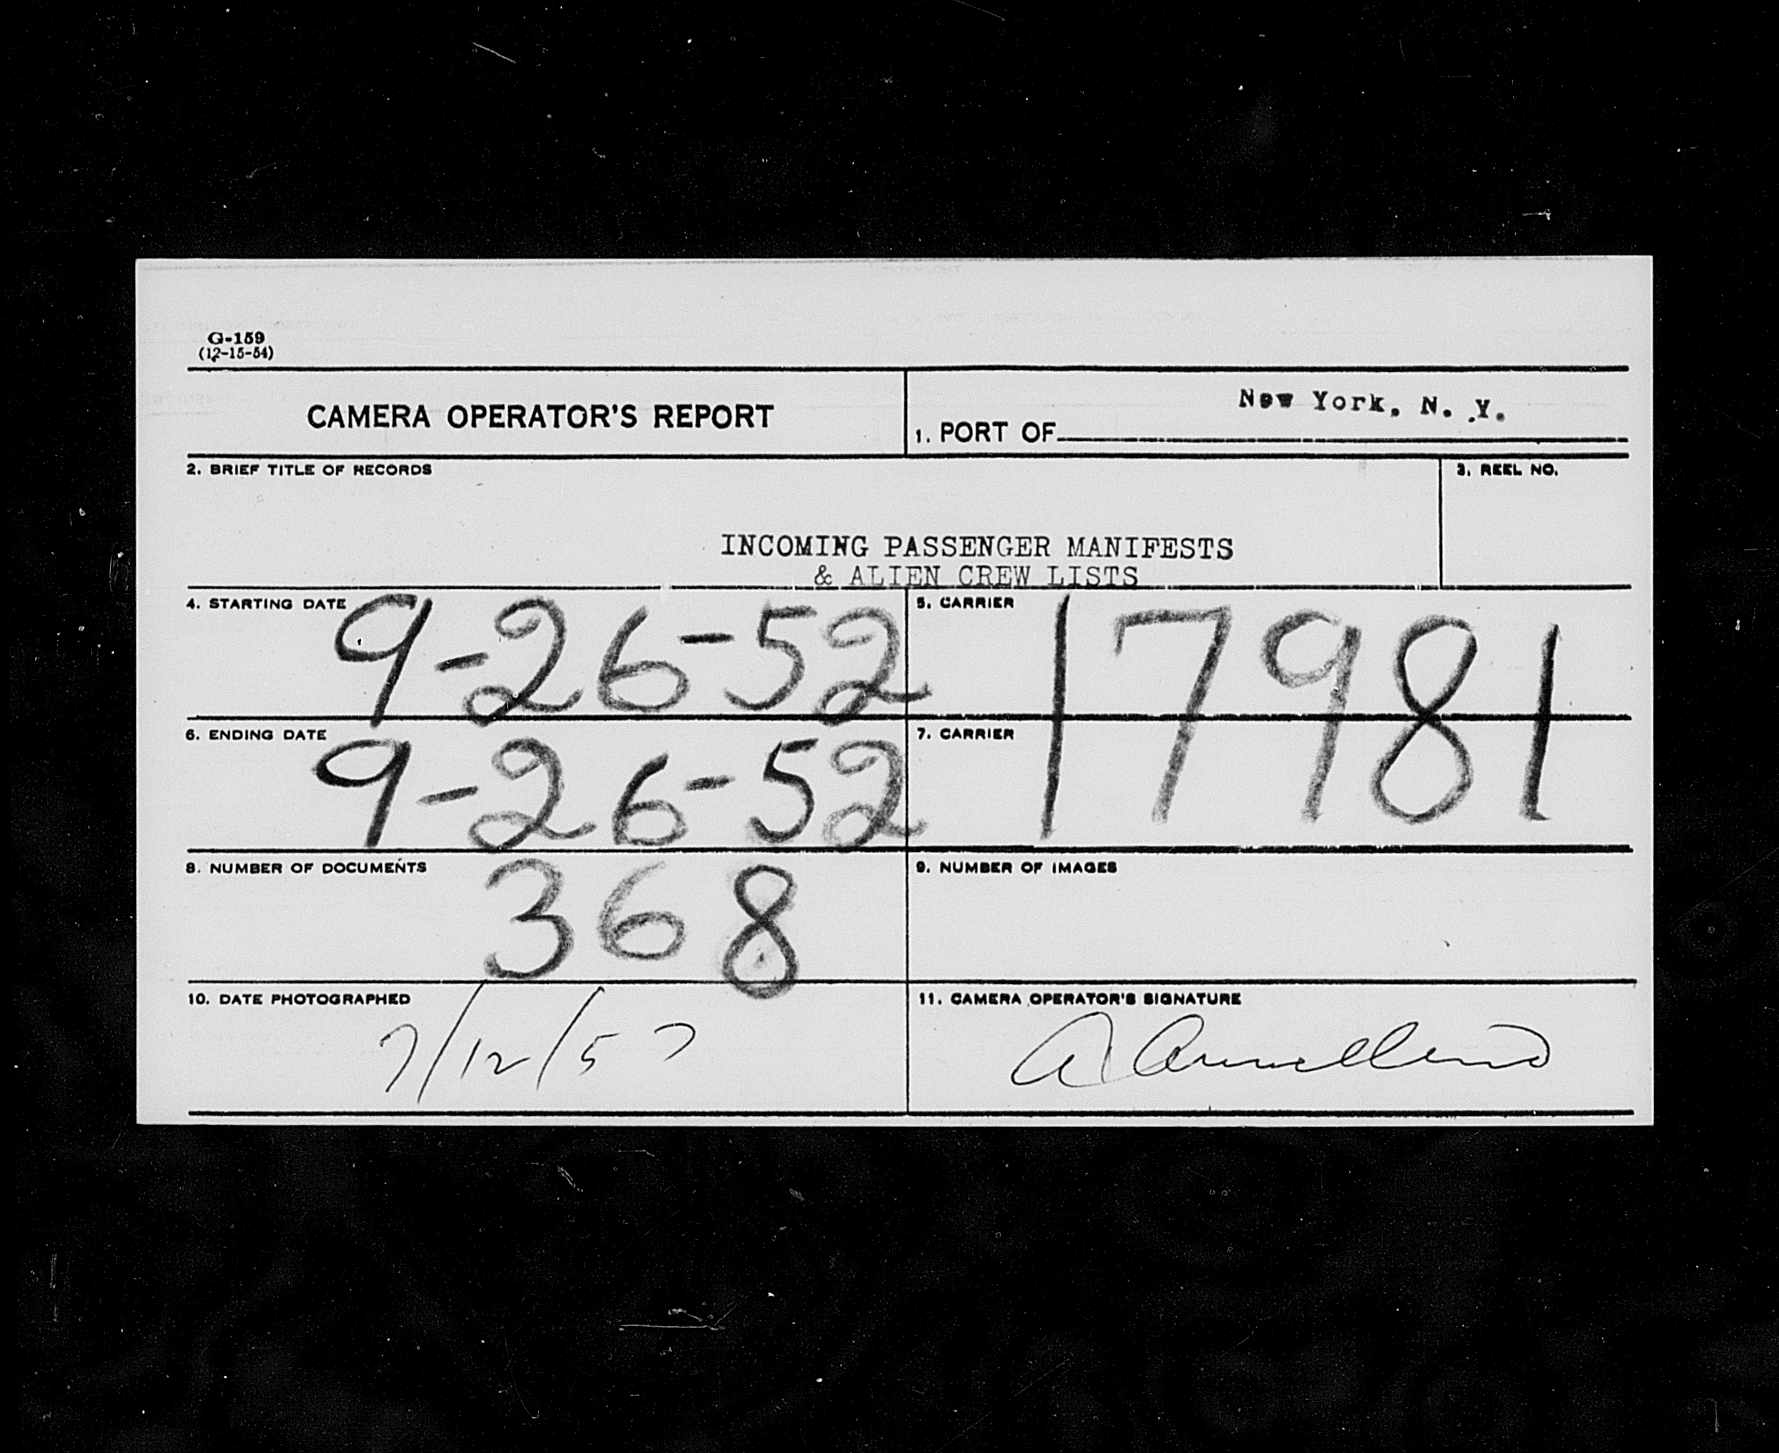 G-159
(12-15-54)
CAMERA OPERATOR'S REPORT
New York, N. Y.
1. PORT OF
2. BRIEF TITLE OF RECORDS
3. REEL NO.
INCOMING PASSENGER MANIFESTS
& ALIEN CREW LISTS
4. STARTING DATE 9-26-52
5. CARRIER 17981
6. ENDING DATE 9-26-52
7. CARRIER
8. NUMBER OF DOCUMENTS 368
9. NUMBER OF IMAGES
10. DATE PHOTOGRAPHED 7/12/57
11. CAMERA OPERATOR'S SIGNATURE